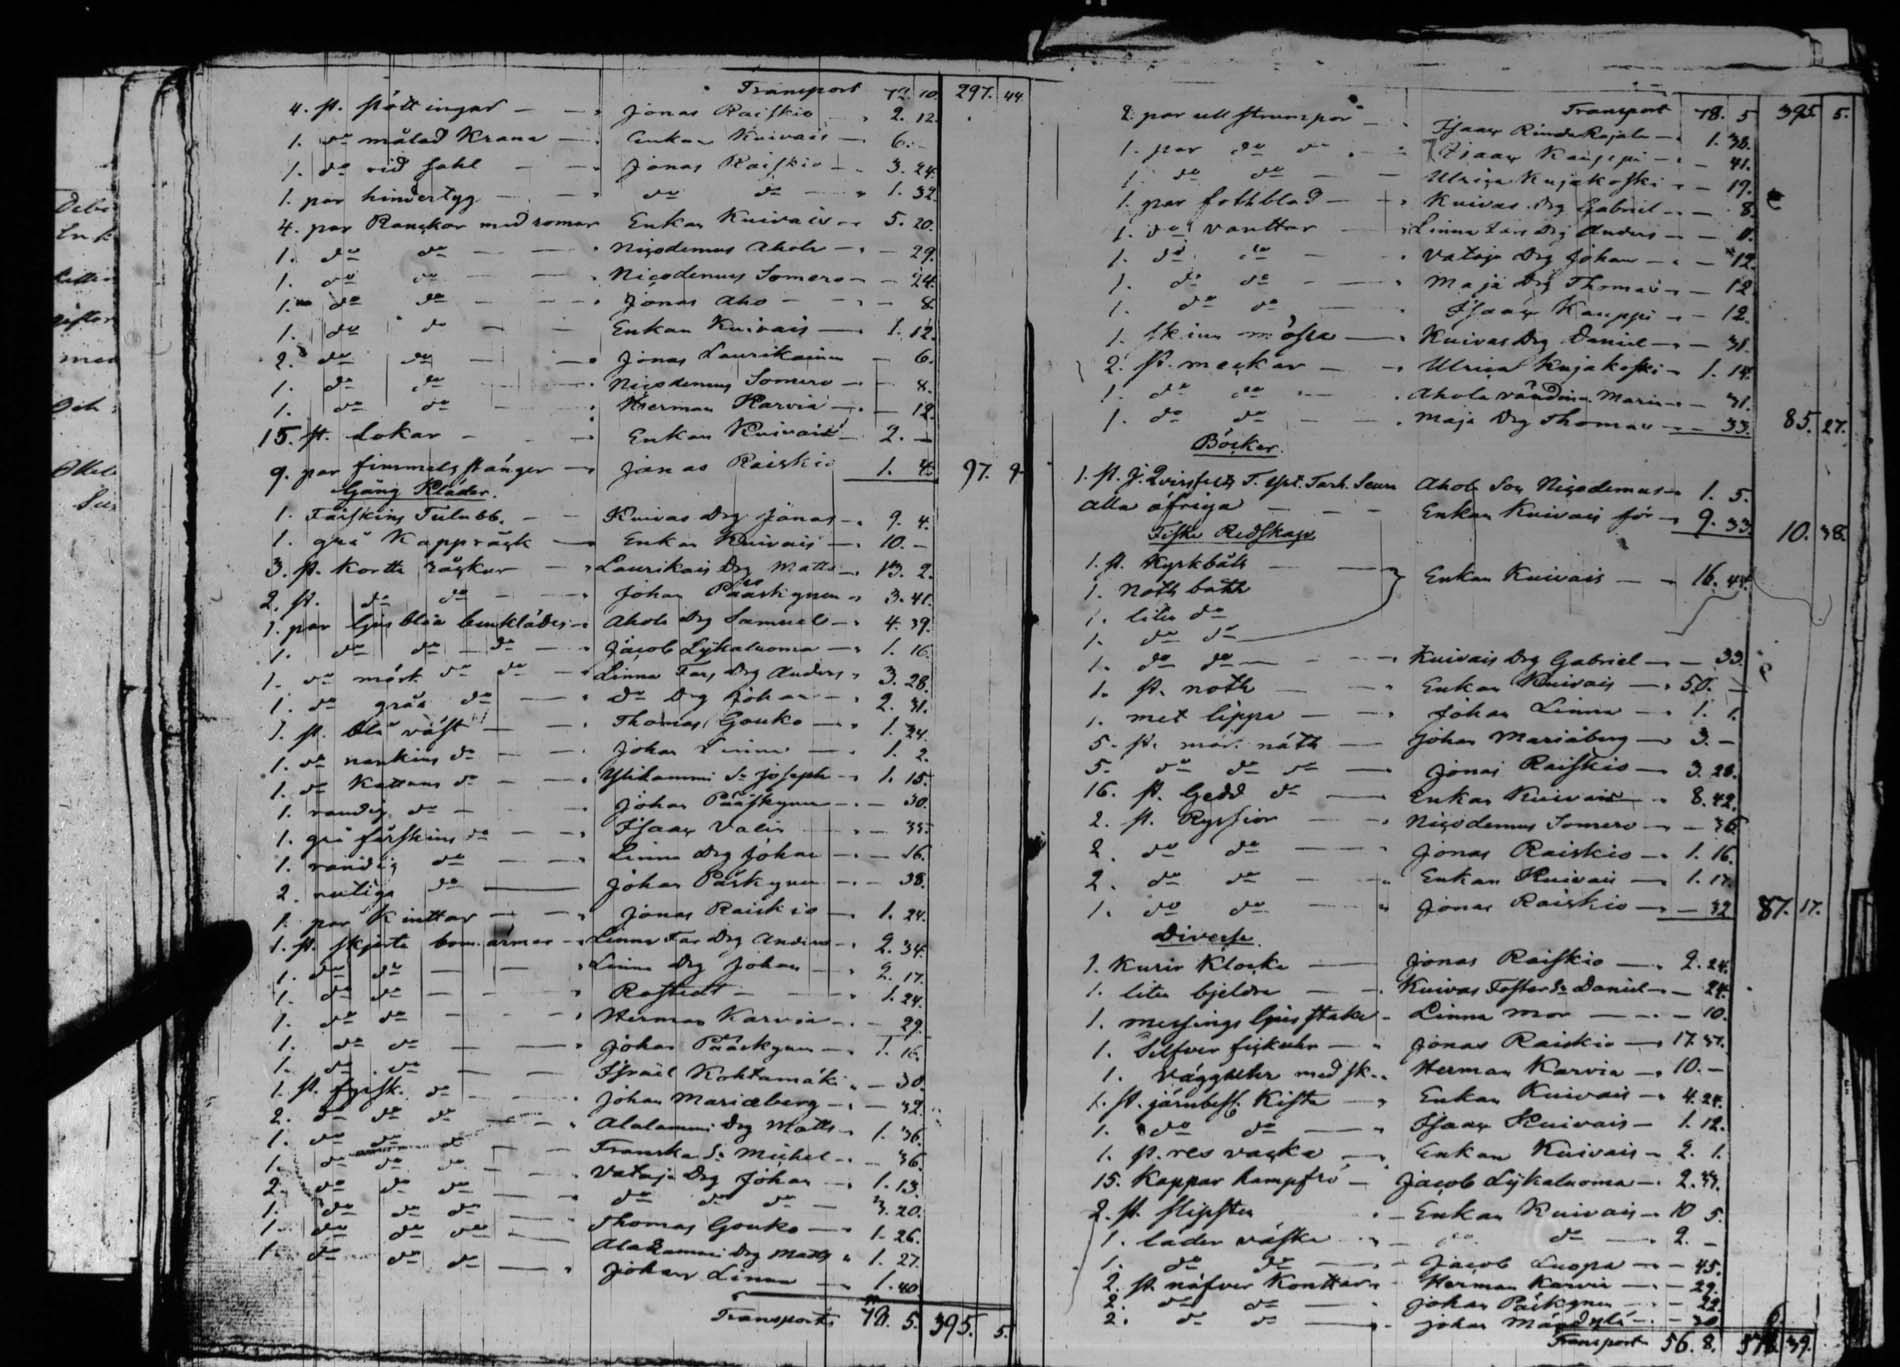 Transport 72. 10. 297. 44.
4. st. stöttingar — Jonas Raiskio 2. 12.
1. do målad Krana — Enkan Kuivais — 6. -
1. do rid sahl — Jonas Raiskio — 3. 24.
1. par hindertyg — do do — 1. 32.
4. par Rankor med romar Enkan Kuivais — 5. 20.
1. do do — Nicodemus Ahola — - 29.
1. do do — Nicodemus Somero — - 24.
1. do do — Jonas Aho — - 8.
1. do do — Enkan Kuivais — 1. 12.
2. do do — Jonas Laurikainen — 6.
1. do do — Nicodemus Somero — - 8.
1. do do — Herman Karvia — - 12.
15. st. Lokar — Enkan Kuivais — 2. —
9. par fimmelstänger — Jonas Raiskio 1. 4. 97. 9
Gång Kläder.
1. Fårskins Tulubb. — Kuivas Drg Jonas — 9. 4.
1. grå Kappråck — Enkan Kuivais — 10. -
3. st. Korta råckar — Laurikais Drg Matts — 13. 2.
2. st. do do — Johan Pääskynen — 3. 41.
1. par ljus blåa benkläder — Ahola Drg Samuel — 4. 39.
1. do do do — Jacob Lykaluoma — 1. 16.
1. do mörk do do — Linna Fars Drg Anders — 3. 28.
1. do gråa do — do Drg Johan — 2. 31.
1. st. blå väst — Thomas Gouko — 1. 24.
1. do nankins do — Johan Linna — 1. 2.
1. do Kattuns do — Ylikammi Sn Joseph — 1. 15.
1. randig do — Johan Pääskynen — - 30.
1. grå fårskins do — Isaac Valin — - 35.
1. randig do — Linna Drg Johan — - 16.
2. rutiga do — Johan Päskynen — - 38.
1. par Kinttar — Jonas Raiskio — 1. 24.
1. st. skjorta bom. ärmar — Linna Far Drg Anders — 2. 34.
1. do do — Linna Drg Johan — 2. 17.
1. do do — Rostedt — 1. 24.
1. do do — Herman Karvia — - 29.
1. do do — Johan Pääskynen — 1. 16.
1. do do — Israel Kohtamäki — - 30.
1. st. do — Johan Mariæberg — - 32.
2. do do do — Alalammi Drg Matts — 1. 36.
1. do do do — Franska Sn Michel — - 36.
1. do do do — Vataja Drg Johan — 1. 13.
2. do do do — do do do — 3. 20.
1. do do do — Thomas Gouko — 1. 26.
1. do do do — Alalammi Drg Matts — 1. 27.
1. do do do — Johan Linna — 1. 40
Transport 78. 5. 395. 5.
Transport 78. 5 395. 5.
2. par ull strumpor — Isaac Rinda Rajala — 1. 32.
1. par do do — Isaac Kauppi — - 41.
1. do do — Ulrica Kujakoski — - 19.
1. par fothblad — Kuivas Drg Gabriel — - 8.
1. do vanttar — Linna Lars Drg Anders — - 11.
1. do do — Vataja Drg Johan — - 12.
1. do do — Maja Drg Thomas — - 12
1. do do — Isaac Kauppi — - 12.
1. skinn mössa — Kuivas Drg Daniel — - 31.
2. st. meckor — Ulrica Kujakoski — 1. 14.
1. do do — Ahola Maria — - 31.
1. do do — Maja Drg Thomas — - 33. 85. 27.
Böcker.
1. st. J. Qvirsfelts Ahola Son Nicodemus — 1. 5.
alla öfriga — Enkan Kuivais för — 9. 33. 10. 38.
Fiske Redskap
1. st. Kyrkbåt — Enkan Kuivais — 16. 44.
1. Noth båth
1. liten do
1. do do
1. do do — Kuivais Drg Gabriel — - 33.
1. st. noth — Enkan Kuivais — 50. -
1. met lippa — Johan Linna — 1. 1.
5. st. näth — Johan Mariäberg — 3. -
5. do do do — Jonas Raiskio — 3. 28.
16. st. Gedd do — Enkan Kuivais — 8. 42.
2. st. Ryssior — Nicodemus Somero — - 36
2. do do — Jonas Raiskio — 1. 16.
2. do do — Enkan Kuivais — 1. 17.
1. do do — Jonas Raiskio — - 32 87. 17.
Diverse.
1. Kurir Klocka — Jonas Raiskio — 2. 24.
1. liten bjeldra — Kuivas Foster Sn Daniel — - 24.
1. messings ljusstake - Linna mor — - 10.
1. Silfver fickuhr — Jonas Raiskio — 17. 37.
1. Vägguhr med sk. Herman Karvia — 10. -
1. st. järnbesl. Kista — Enkan Kuivais — 4. 24.
1. do do — Isaac Kuivais — 1. 12.
1. st. res vacka — Enkan Kuivais — 2. 1.
15. Kappar hampfrö — Jacob Lykaluoma — 2. 33.
2. st. slipsten — Enkan Kuivais — 10 5.
1. läder väska — do — 2. -
1. do do — Jacob Luopa — - 45.
2. st. näfver Konttar — Herman Karvia — - 29.
2. do do — Johan Päskynen — - 22
2. do do — Johan — - 20
Transport 56. 8. 39.